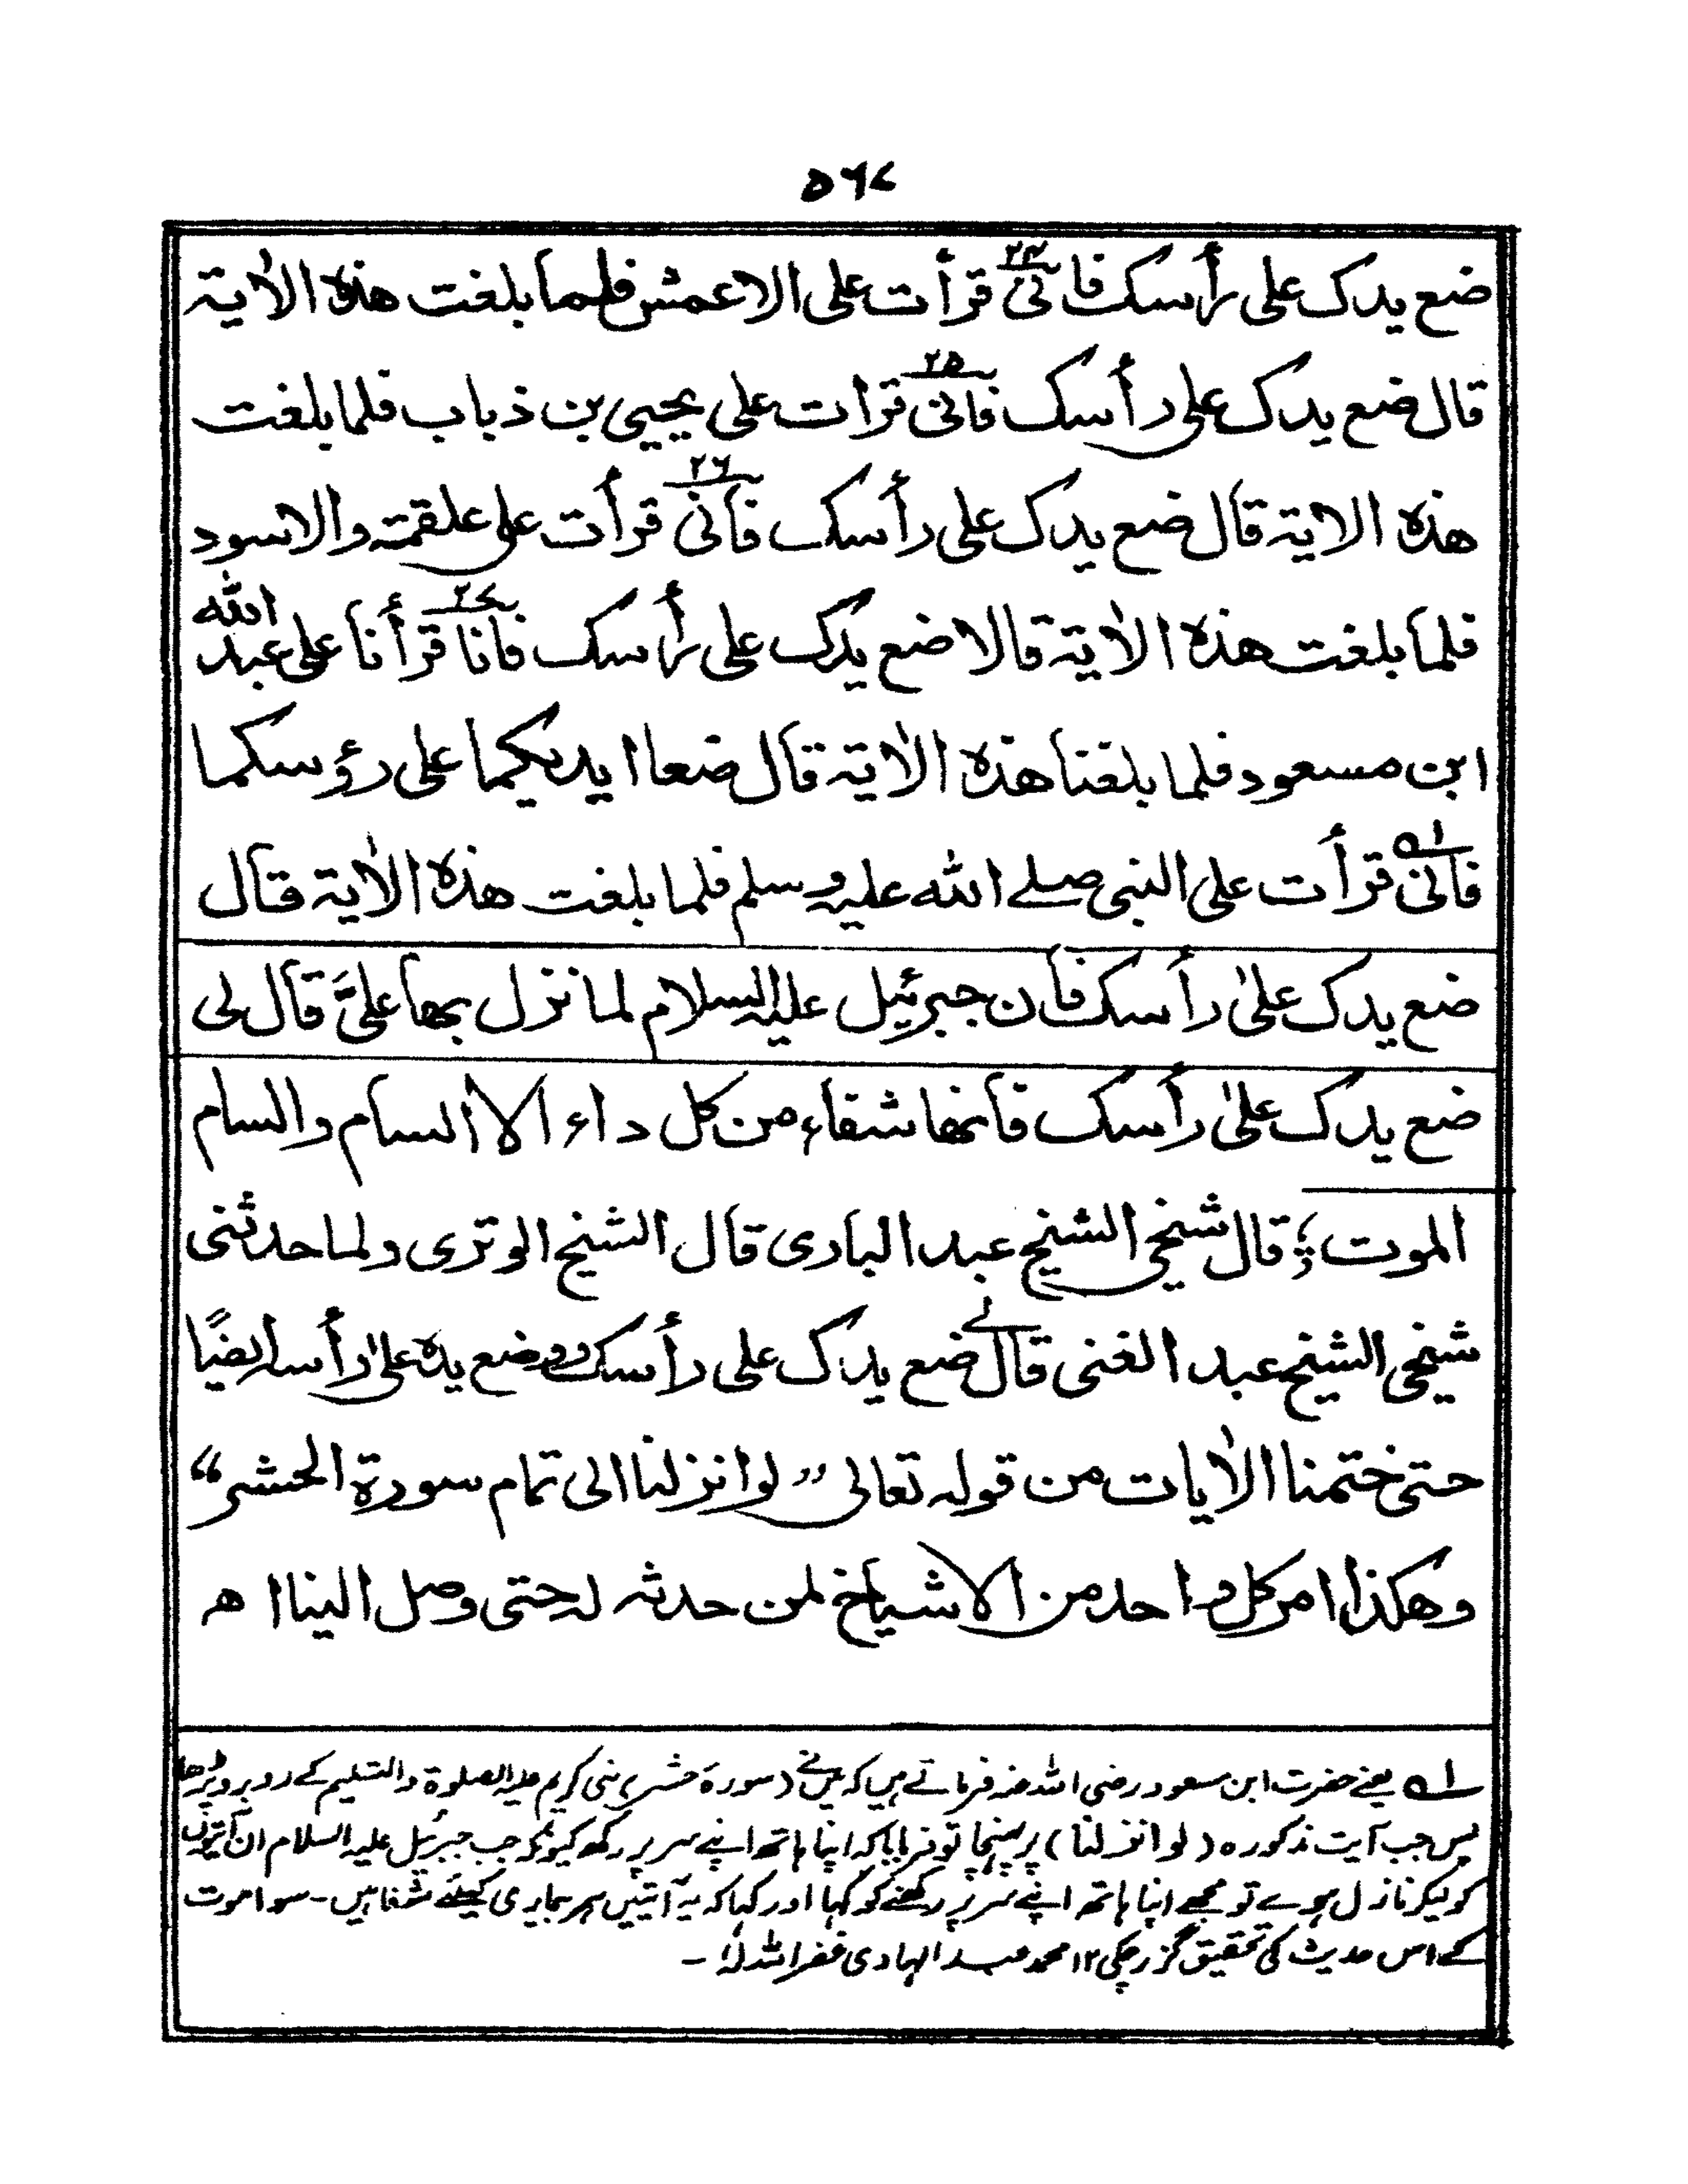 ۵۶۷
ضع يدك على رأسك فانى۲۴ قرأت على الاعمش فلما بلغت هذه الاٰية
قال ضع يدك على رأسك فانى۲۵ قرات على يحيى بن ذباب فلما بلغت
هذه الاية قال ضع يدك على رأسك فانى۲۶ قرأت على علقمة والاسود
فلما بلغت هذه الاٰية قالا ضع يدك على رأسك فانا۲۷ قرأنا على عبد الله
ابن مسعود فلما بلغنا هذه الاٰية قال ضعا ايديكما على رؤسكما
فانى۱ه قرأت على النبى صلے الله عليه وسلم فلما بلغت هذه الاٰية قال
ضع يدك علىٰ رأسك فان جبرئيل عليه السلام لما نزل بها علىَّ قال لى
ضع يدك علىٰ رأسك فانها شفاء من كل داء الا السام والسام
الموت ؛ قال شيخى الشيخ عبد البارى قال الشيخ الوترى ولما حدثنى
شيخى الشيخ عبد الغنى قال لى ضع يدك على رأسك ووضع يده علىٰ رأسه ايضًا
حتى ختمنا الاٰيات من قوله تعالى ” لو انزلنا الى تمام سورة الحشر “
وهكذا امر كل واحد من الاشياخ لمن حدثه له حتى وصل الينا اه
۱ه یعنے حضرت ابن مسعود رضی اللہ عنہ فرماتے ہیں کہ میں نے (سورۂ حشر) نبی کریم علیہ الصلوٰۃ والتسلیم کے روبرو پڑھا
پس جب آیت مذکورہ (لو انزلنا) پر پہنچا تو فرمایا کہ اپنا ہاتھ اپنے سر پر رکھ کیونکہ جب جبرئیل علیہ السلام ان آیتوں
کو لیکر نازل ہوے تو مجھے اپنا ہاتھ اپنے سر پر رکھنے کو کہا اور کہا کہ یہ آیتیں ہر بیماری کیلئے شفا ہیں - سوا موت
کے اس حدیث کی تحقیق گزر چکی ۱۲ محمد عبد الہادی غفر اللہ لہٗ -